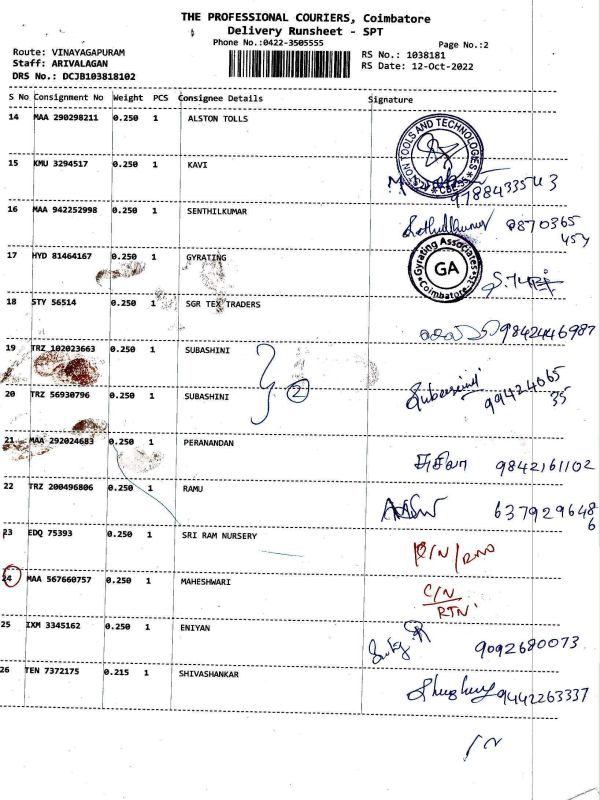 THE PROFESSIONAL COURIERS, Coimbatore
Delivery Runsheet - SPT
Phone No.:0422-3505555
Page No.:2
Route: VINAYAGAPURAM
RS No.: 1038181
Staff: ARIVALAGAN
RS Date: 12-Oct-2022
DRS No.: DCJB103818102
S No Consignment No Weight PCS Consignee Details Signature
14 MAA 290298211 0.250 1 ALSTON TOLLS
TOOLS AND TECHNOLOGIES
15 KMU 3294517 0.250 1 KAVI
9788433543
16 MAA 942252998 0.250 1 SENTHILKUMAR
9870365
454
17 HYD 81464167 0.250 1 GYRATING
Gyrating Associates
GA
Coimbatore-35
18 STY 56514 1 SGR TEX TRADERS
9842446987
19 TRZ 102023663 0.250 1 SUBASHINI
2
20 TRZ 56930796 0.250 1 SUBASHINI
99424665
35
21 MAA 292024683 0.250 1 PERANANDAN
சுசிலா 9842161102
22 TRZ 200496806 0.250 1 RAMU
637929648
6
23 EDQ 75393 0.250 1 SRI RAM NURSERY
24 MAA 567660757 0.250 1 MAHESHWARI
C/N
RTN
25 IXM 3345162 0.250 1 ENIYAN
9092680073
26 TEN 7372175 0.215 1 SHIVASHANKAR
9442263337